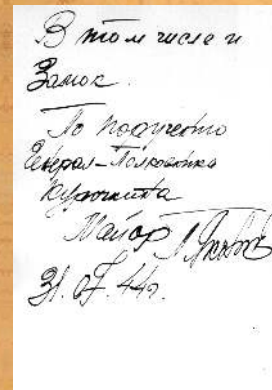 В том числе и
Замок.
По поручению
Генерал-Полковника
Курочкина
Майор
31.07.44г.